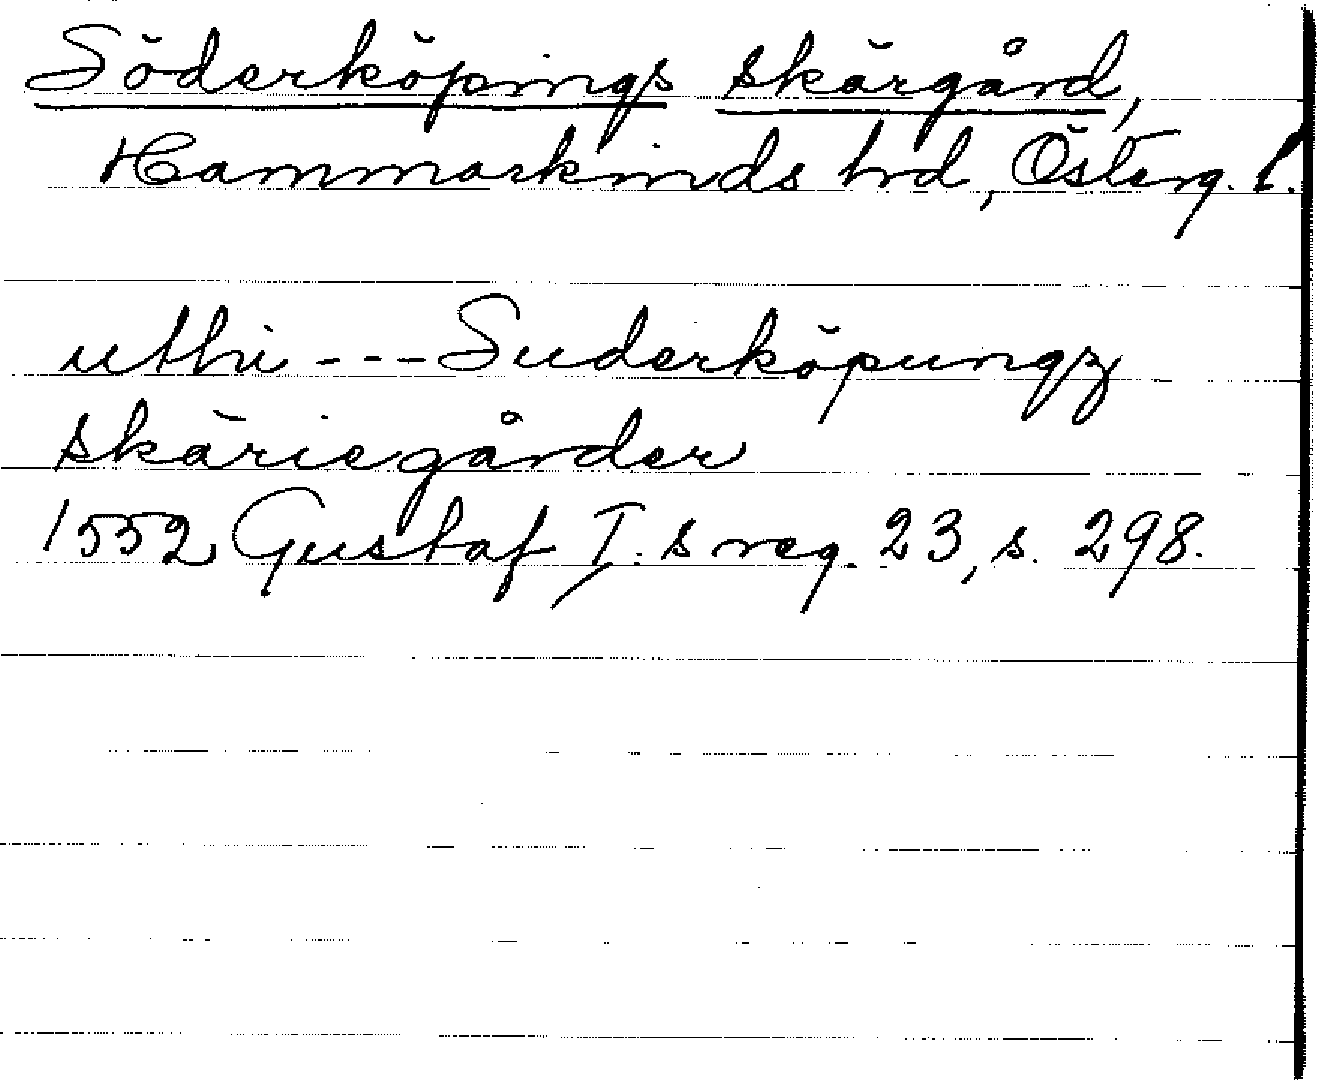 Söderköpings skärgård,
Hammarkinds hrd, Österg. l.
uthi --- Suderköpungz
skäriegårder
1552 Gustaf I:s reg. 23, s. 298.